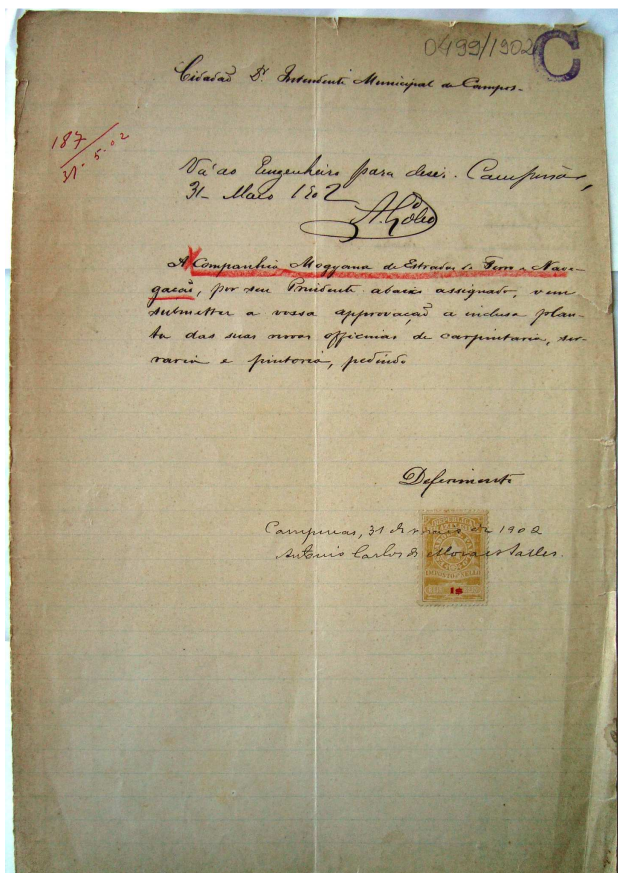 0499/1902
C
Cidadão Dr. Intendente Municipal de Campos.
187
31-5-02
Vá ao Engenheiro para dizer. Campinas,
31-Maio 1902
A Companhia Mogyana de Estradas de Ferro e Nave-
gação, por seu Presidente abaixo assignado, vem
submetter a vossa approvação a inclusa plan-
ta das suas novas officinas de carpintaria, ser-
raria e pintoria, pedindo
Deferimento
Campinas, 31 de maio de 1902
Antonio Carlos de Moraes Salles.
1$